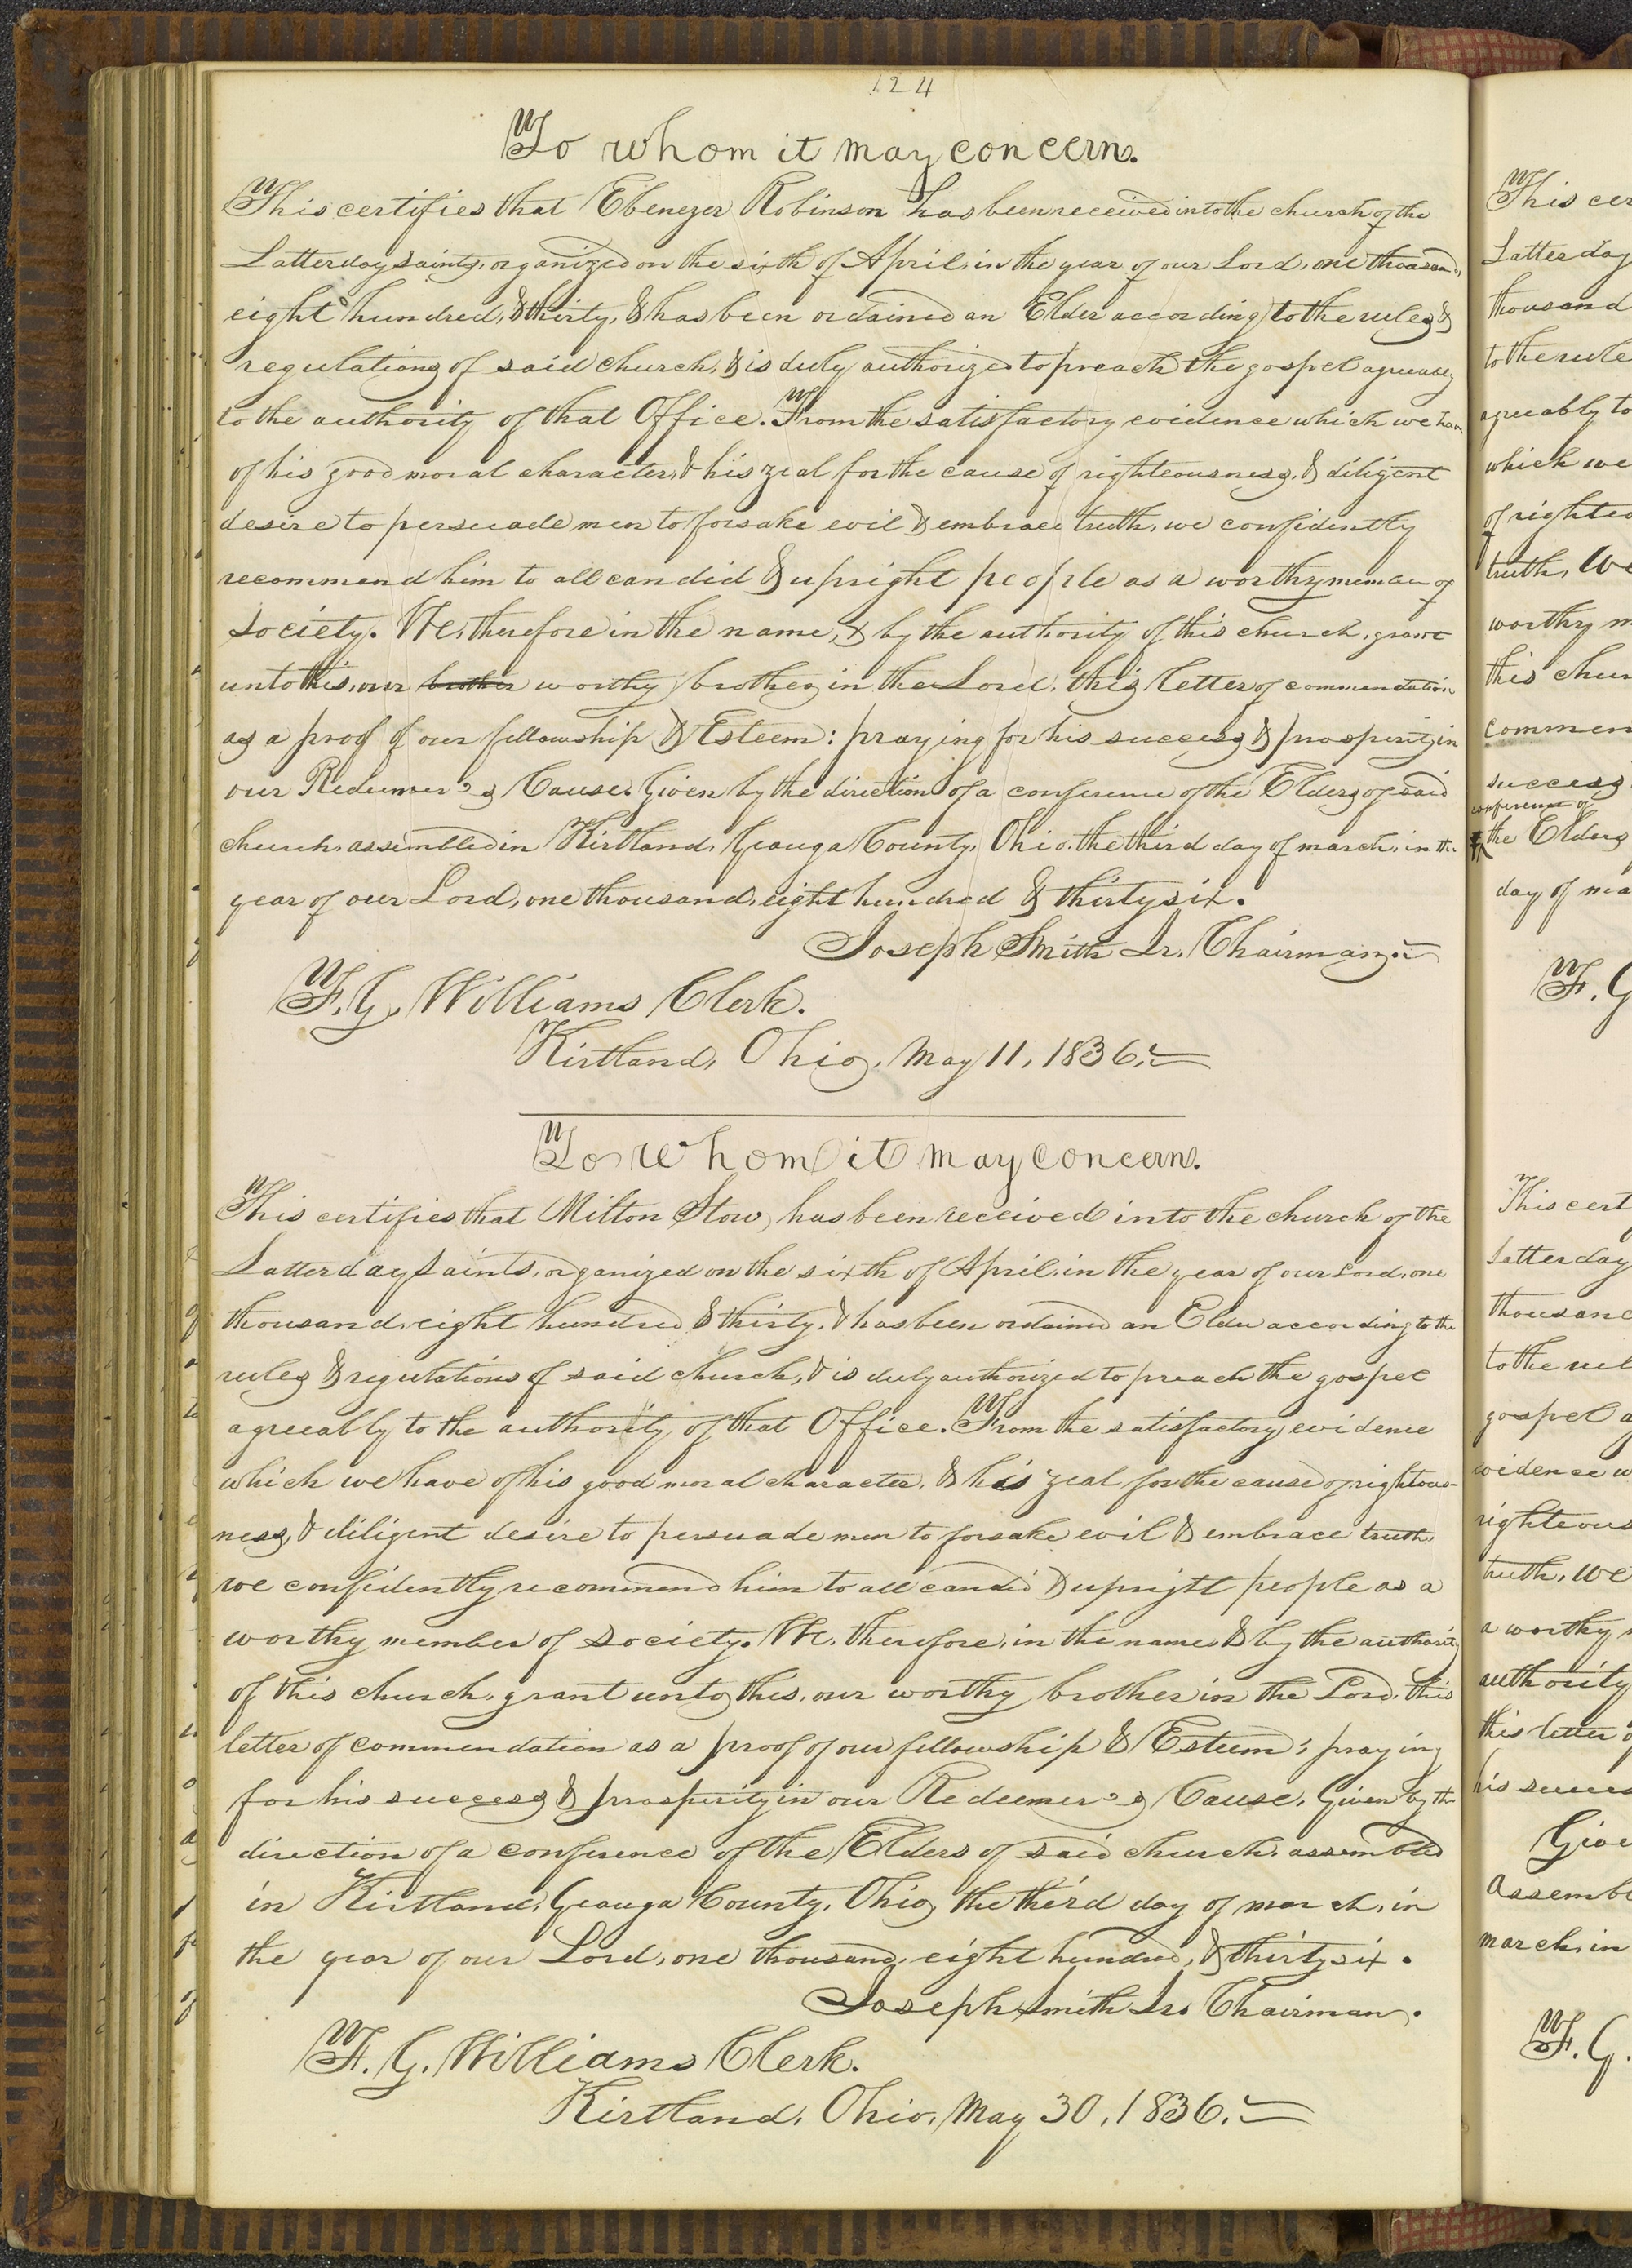 124
To whom it may concern.
This certifies that Ebenezer Robinson has been received into the church of the
Latterday saints, organized on the sixth of April, in the year of our Lord, one thousand,
eight hundred, & thirty, & has been ordained an Elder according to the rules &
regulations of said church, & is duly authorized to preach the gospel agreeably
to the authority of that Office. From the satisfactory evidence which we have
of his good moral character, & his zeal for the cause of righteousness, & diligent
desire to persuade men to forsake evil & embrace truth, we confidently
recommend him to all candid & upright people as a worthy member of
society. We, therefore in the name, & by the authority of this church, grant
unto this, our brother worthy brother in the Lord, this letter of commendation
as a proof of our fellowship & Esteem: praying for his success & prosperity in
our Redeemer's Cause. Given by the direction of a conference of the Elders of said
church, assembled in Kirtland, Geauga County, Ohio, the third day of march, in the
year of our Lord, one thousand, eight hundred & thirty six.
Joseph Smith Jr. Chairman.
F. G. Williams Clerk.
Kirtland, Ohio, May 11, 1836.
To whom it may concern.
This certifies that Milton Stow, has been received into the church of the
Latterday Saints, organized on the sixth of April, in the year of our Lord, one
thousand, eight hundred & thirty, & has been ordained an Elder according to the
rules & regulations of said church, & is duly authorized to preach the gospel
agreeably to the authority of that Office. From the satisfactory evidence
which we have of his good moral character, & his zeal for the cause of rightous-
ness, & diligent desire to persuade men to forsake evil & embrace truth,
we confidently recommend him to all candid & upright people as a
worthy member of society. We, therefore, in the name & by the authority
of this church, grant unto this, our worthy brother in the Lord, this
letter of commendation as a proof of our fellowship & Esteem; praying
for his success & prosperity in our Redeemer's Cause. Given by the
direction of a conference of the Elders of said church, assembled
in Kirtland, Geauga County, Ohio, the third day of march, in
the year of our Lord, one thousand, eight hundred, & thirty six.
Joseph Smith Jr. Chairman.
F. G. Williams Clerk.
Kirtland, Ohio, May 30, 1836.
This cer
Latter day
thousand
to the rule
agreeably to
which we
of righteo
truth, We
worthy m
this chur
commen
success
conference of
the Elders
day of ma
F. G
This cert
Latter day
thousand
to the rul
gospel a
evidence w
righteous
truth, we
a worthy
authority
this letter o
his succes
Give
assemb
march, in
F. G.